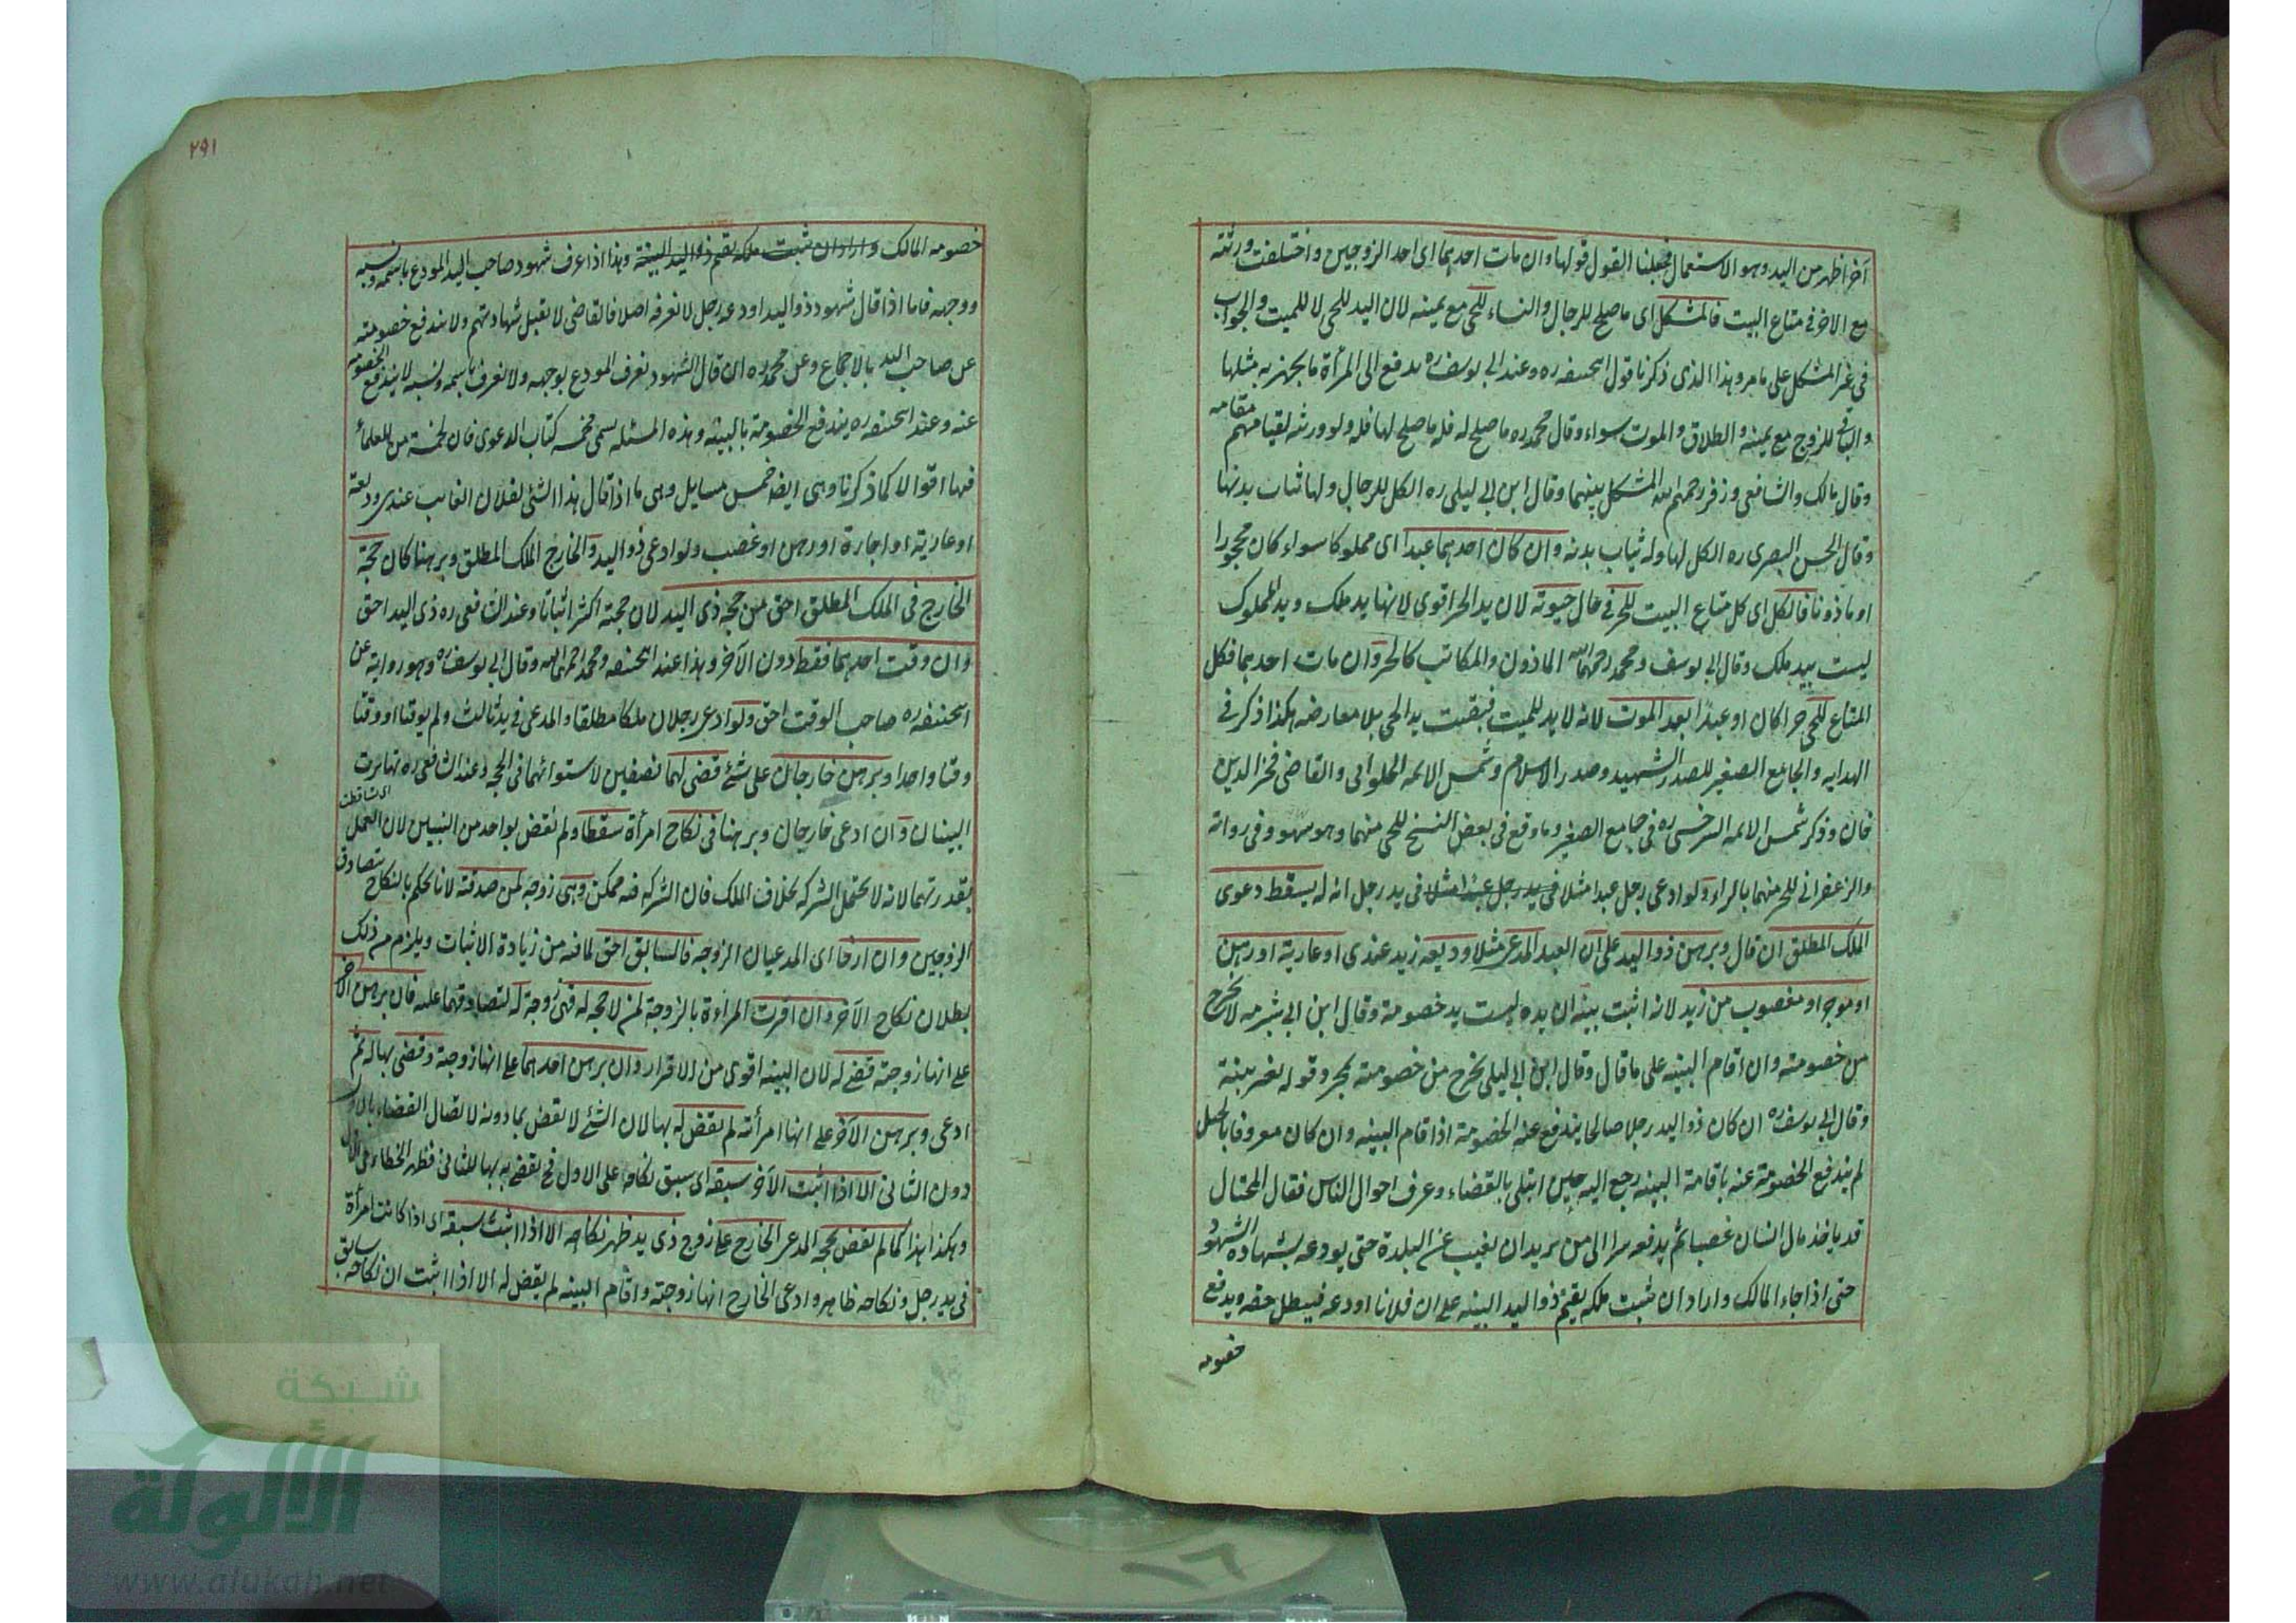 آخر اظهر من اليد وهو الاستعمال فجعلنا القول قولها وان مات احدهما اى احد الزوجين واختلفت ورثته
مع الاخر فى متاع البيت فالمشكل اى ما صلح للرجال والنساء للحى مع يمينه لان اليد للحى لا للميت والجواب
فى غير المشكل على ما مر وهذا الذى ذكرنا قول ابيحنيفه ره وعند ابى يوسف ره يدفع الى المرأة ما يجهز به مثلها
والباقى للزوج مع يمينه والطلاق والموت سواء وقال محمد ره ما صلح له فله ما صلح لها فله ولو ورثه لقيامهم مقامه
وقال مالك والشافعى وزفر رحمهم الله المشكل بينهما وقال ابن ابى ليلى ره الكل للرجال ولها ثياب بدنها
وقال الحسن البصرى ره الكل لها وله ثياب بدنه وان كان احدهما عبدا اى مملوكا سواء كان محجورا
او ماذونا فالكل اى كل متاع البيت للحر فى حال حيوته لان يد الحر اقوى لانها يد ملك ويد المملوك
ليست بيد ملك وقال ابى يوسف ومحمد رحمهما الله الماذون والمكاتب كالحر وان مات احدهما فكل
المتاع للحى حرا كان او عبدا بعد الموت لانه لا يد للميت فبقيت يد الحى بلا معارضه هكذا ذكر فى
الهدايه والجامع الصغير للصدر الشهيد وصدر الاسلام وشمس الائمه الحلوانى والقاضى فخر الدين
خان وذكر شمس الائمه السرخسى ره فى جامع الصغير وما وقع فى بعض النسخ للحى منهما وهو سهو وفى رواية
والزعفرانى للحر منهما بالراء ولو ادعى رجل عبدا مثلا فى يد رجل عبدا مثلا فى يد رجل انه له يسقط دعوى
الملك المطلق ان قال وبرهن ذو اليد على ان العبد المدعى مثلا وديعه زيد عندى او عارية او رهن
او موجر او مغصوب من زيد لانه اثبت بينه ان يده ليست يد خصومة وقال ابن ابى شبرمه لا يخرج
من خصومته وان اقام البينه على ما قال وقال ابن ابى ليلى يخرج من خصومته بمجرد قوله بغير بينة
وقال ابى يوسف ره ان كان ذو اليد رجلا صالحا يندفع عنه الخصومة اذا قام البينه وان كان معروفا بالحيل
لم يندفع الخصومة عنه باقامة البينه رجع اليه حين ابتلى بالقضاء وعرف احوال الناس فقال المحتال
قد ياخذ مال انسان غصبا ثم يدفعه سرا الى من يريد ان يغيب عن البلدة حتى يودعه بشهادة الشهود
حتى اذا جاء المالك واراد ان يثبت ملكه يقيم ذو اليد البينه على ان فلانا اودعه فيبطل حقه ويدفع
خصومه
٢٩١
خصومه المالك واراد ان يثبت ملكه يقيم ذو اليد البينة وهذا اذا عرف شهود صاحب اليد المودع باسمه ونسبه
ووجهه فاما اذا قال شهود ذو اليد اودعه رجل لا نعرفه اصلا فالقاضى لا يقبل شهادتهم ولا يندفع خصومته
عن صاحب اليد بالاجماع وعن محمد ره ان قال الشهود نعرف المودع بوجهه ولا نعرف باسمه ونسبه لا يندفع الخصومه
عنه وعند ابيحنيفه ره يندفع الخصومة بالبينه وهذه المسئله تسمى مخمسه كتاب الدعوى فان لخمسة من العلماء
فيها اقوالا كما ذكرنا وهى ايضا خمس مسايل وهى ما اذا قال هذا الشئ لفلان الغايب عندى وديعة
او عارية او اجارة او رهن او غصب ولو ادعى ذو اليد والخارج الملك المطلق وبرهنا كان حجة
الخارج فى الملك المطلق احق من حجه ذى اليد لان حجته اكثر اثباتا وعند الشافعى ره ذى اليد احق
وان وقت احدهما فقط دون الآخر وهذا عند ابيحنيفه ومحمد رحمهما الله وقال ابى يوسف ره وهو رواية عن
ابيحنيفه ره صاحب الوقت احق ولو ادعى رجلان ملكا مطلقا والمدعى فى يد ثالث ولم يوقتا او وقتا
وقتا واحدا وبرهن خارجان على شئ قضى لهما نصفين لاستوائهما فى الحجه وعند الشافعى ره تهاترت
اى تساقطت
البينتان وان ادعى خارجان وبرهنا فى نكاح امرأة سقطا ولم يقض بواحد من البينتين لان العمل
بقدرتهما لانه لا يحتمل الشركه بخلاف الملك فان الشركه فيه ممكن وهى زوجه لمن صدقته لانا نحكم بالنكاح بتصادق
الزوجين وان ارخا اى المدعيان الزوجه فالسابق احق لما فيه من زيادة الاثبات ويلزم من ذلك
بطلان نكاح الآخر وان اقرت المراءة بالزوجة لمن لا حجه له فهى زوجة له لتصادقهما عليه فان برهن الآخر
على انها زوجته قضى له لان البينه اقوى من الاقرار وان برهن احدهما على انها زوجته وقضى بها له ثم
ادعى وبرهن الآخر على انها امرأته لم يقض له بها لان الشئ لا يقض بما دونه لاتصال القضاء بالاول
دون الثانى الا اذا اثبت الآخر سبقه اى سبق نكاحه على الاول فح يقضى به بها للثانى فظهر الخطاء فى الاول
وهكذا هذا كما لم يقض بحجه المدعى الخارج على زوج ذى يد ظهر نكاحه الا اذا اثبت سبقه اى اذا كانت امرأة
فى يد رجل ونكاحه ظاهر وادعى الخارج انها زوجته واقام البينه لم يقض له الا اذا اثبت ان نكاحه سابق
شبكة
الألوكة
www.alukah.net
١٦